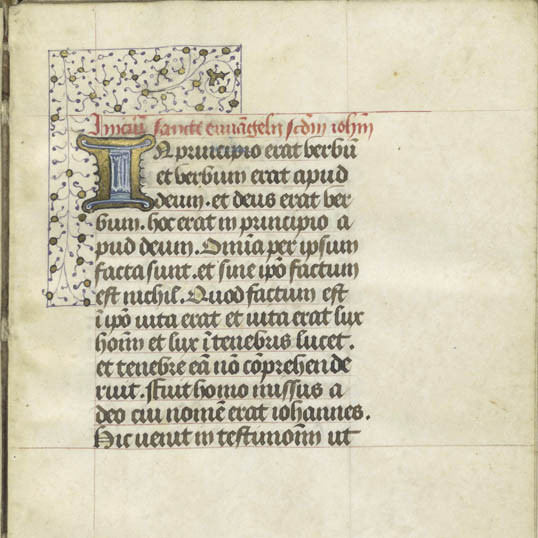 Iniciũ sancte euuãgelii scdm̃ iohñ
IN principio erat verbũ
et verbum erat apud
deum. et deus erat ver
bum. hoc erat in principio a
pud deum. Omnĩa per ipsum
facta sunt. et sine ipõ factum
est nichil. Quod factum est
ĩ ipõ uita erat et uita erat lux
homĩ et lux ĩ tenebris lucet.
et tenebre eã nõ cõprehende
runt. Fuit homo missus a
deo cui nomẽ erat iohannes.
Hic uenit in testimoñ ut